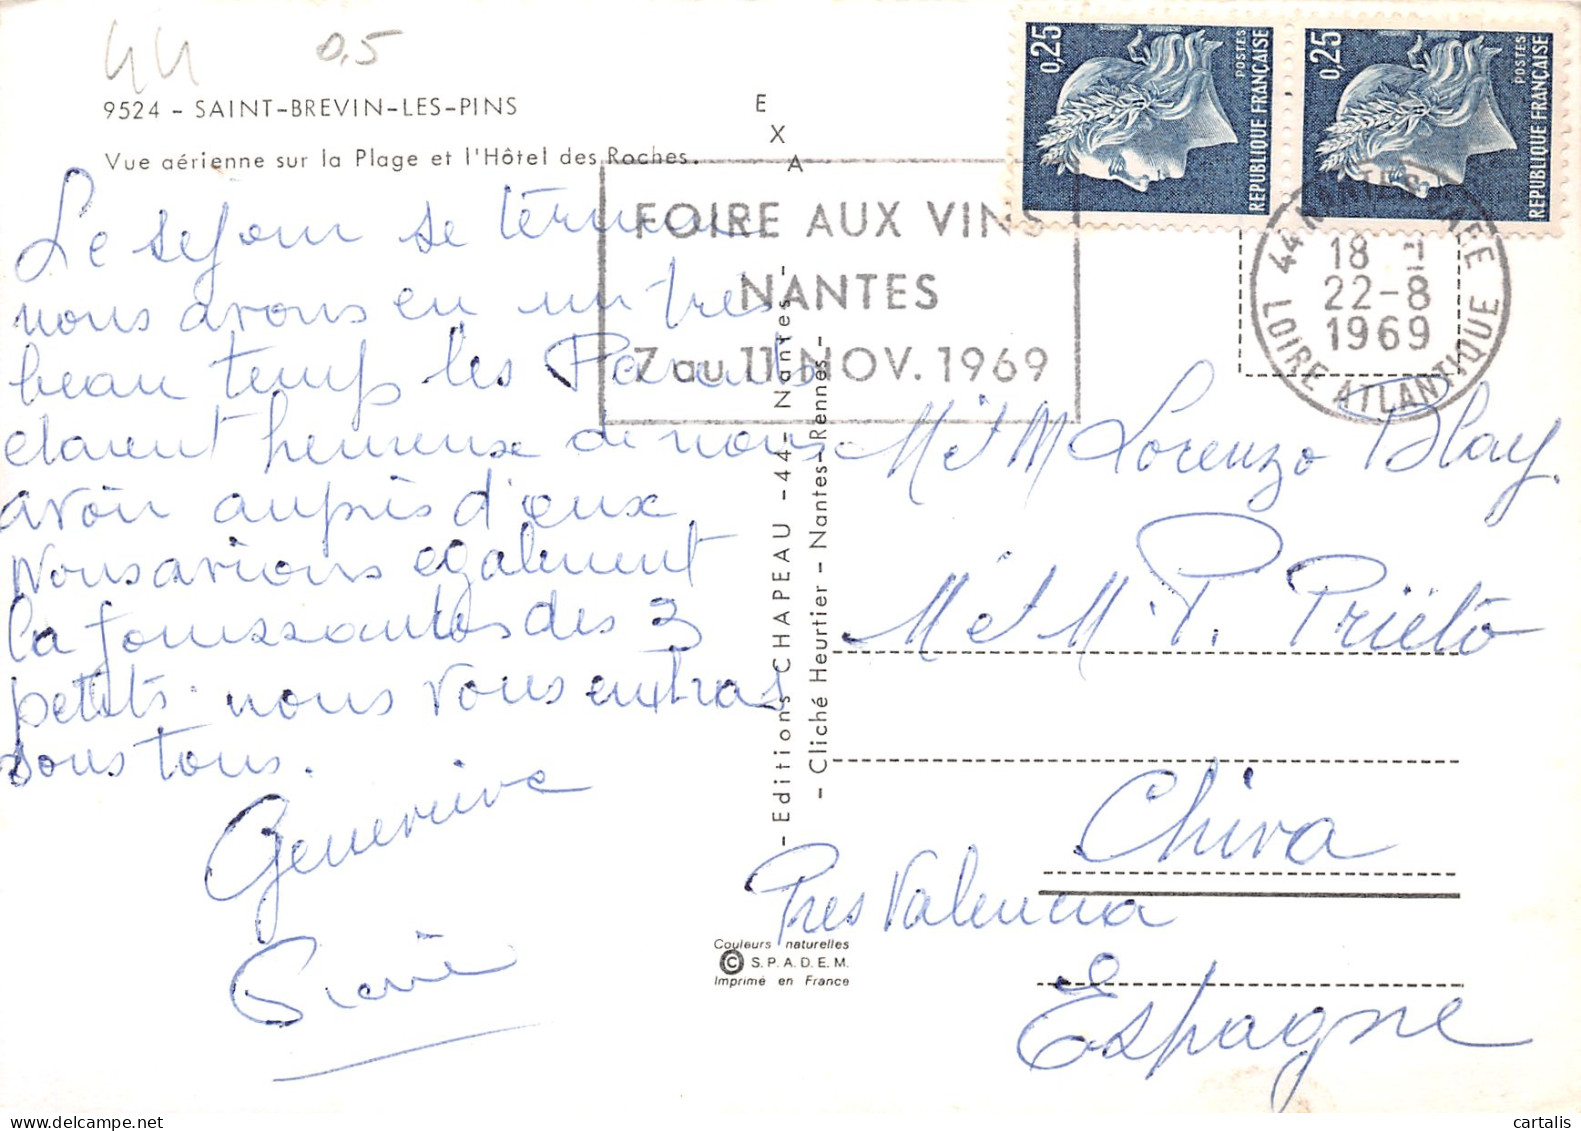 44 0,5
9524 - SAINT-BREVIN-LES-PINS
Vue aérienne sur la Plage et l'Hôtel des Roches.
E
X
A
Le sejour se termine
nous avons eu un tres
beau temps les Parents
etaient heureux de nous
avoir auprès d'eux
Nous avions egalement
la jouissantes des 3
petits. nous vous embras
sons tous.
Genevieve
Pierre
- Editions CHAPEAU -44- Nantes -
- Cliché Heurtier - Nantes-Rennes -
Couleurs naturelles
© S.P.A.D.E.M.
Imprimé en France
FOIRE AUX VINS
NANTES
7 au 11 NOV. 1969
0,25 POSTES REPUBLIQUE FRANÇAISE
0,25 POSTES REPUBLIQUE FRANÇAISE
44 NANTES GARE
18 H
22-8
1969
LOIRE ATLANTIQUE
M et M Lorenzo Blay.
M et M. P. Priëto
Chiva
Pres Valencia
Espagne
cartalis